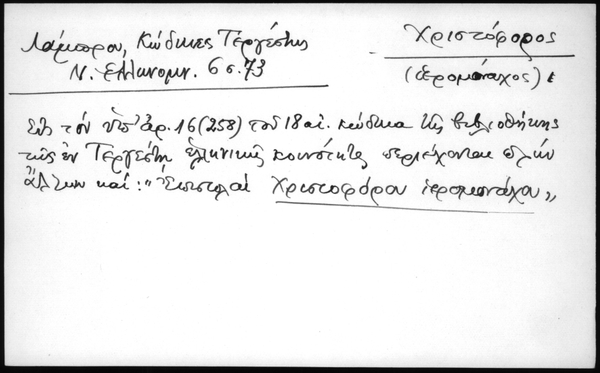 Λάμπρου, Κώδικες Τεργέστης
Ν. Ελληνομν. 6 σ. 73
Χριστόφορος
(ἱερομόναχος)
Εἰς τόν ὑπ' ἀρ. 16 (258) τοῦ 18 αἰ. κώδικα τῆς βιβλιοθήκης
τῆς ἐν Τεργέστῃ ἑλληνικῆς κοινότητος περιέχονται πλήν
ἄλλων καί: "Ἐπιστολαί Χριστοφόρου ἱερομονάχου"